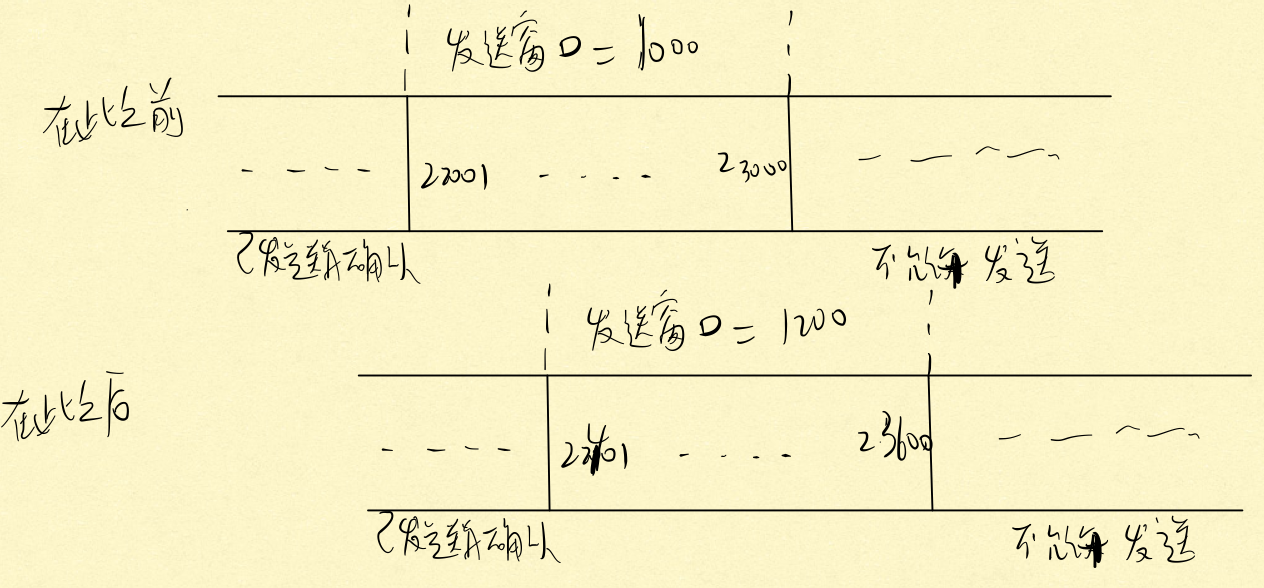 发送窗口 = 1000
在此之前
22001 ···· 23000
已发送并确认 不允许 发送
发送窗口 = 1200
在此之后
22401 ···· 23600
已发送并确认 不允许 发送